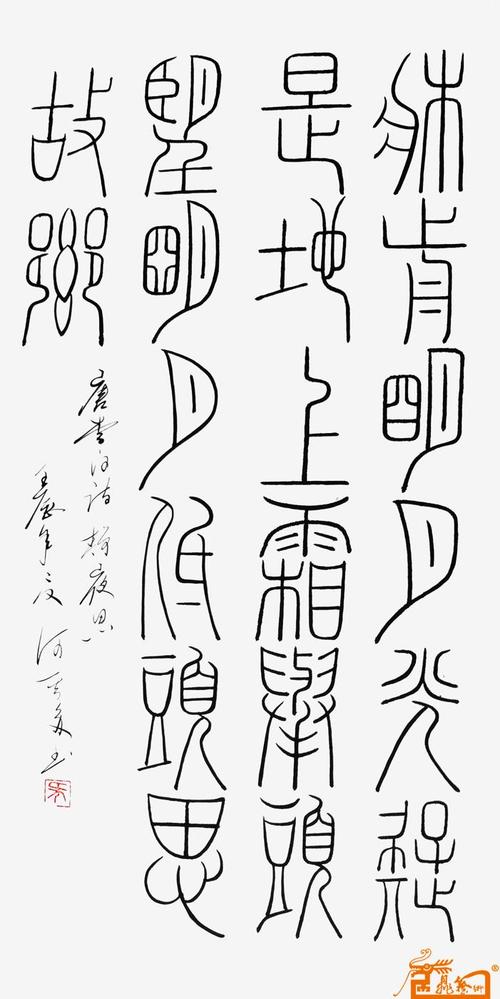 牀前明月光疑
是地上霜舉頭
望明月低頭思
故鄉
唐李白詩靜夜思
壬辰年 書